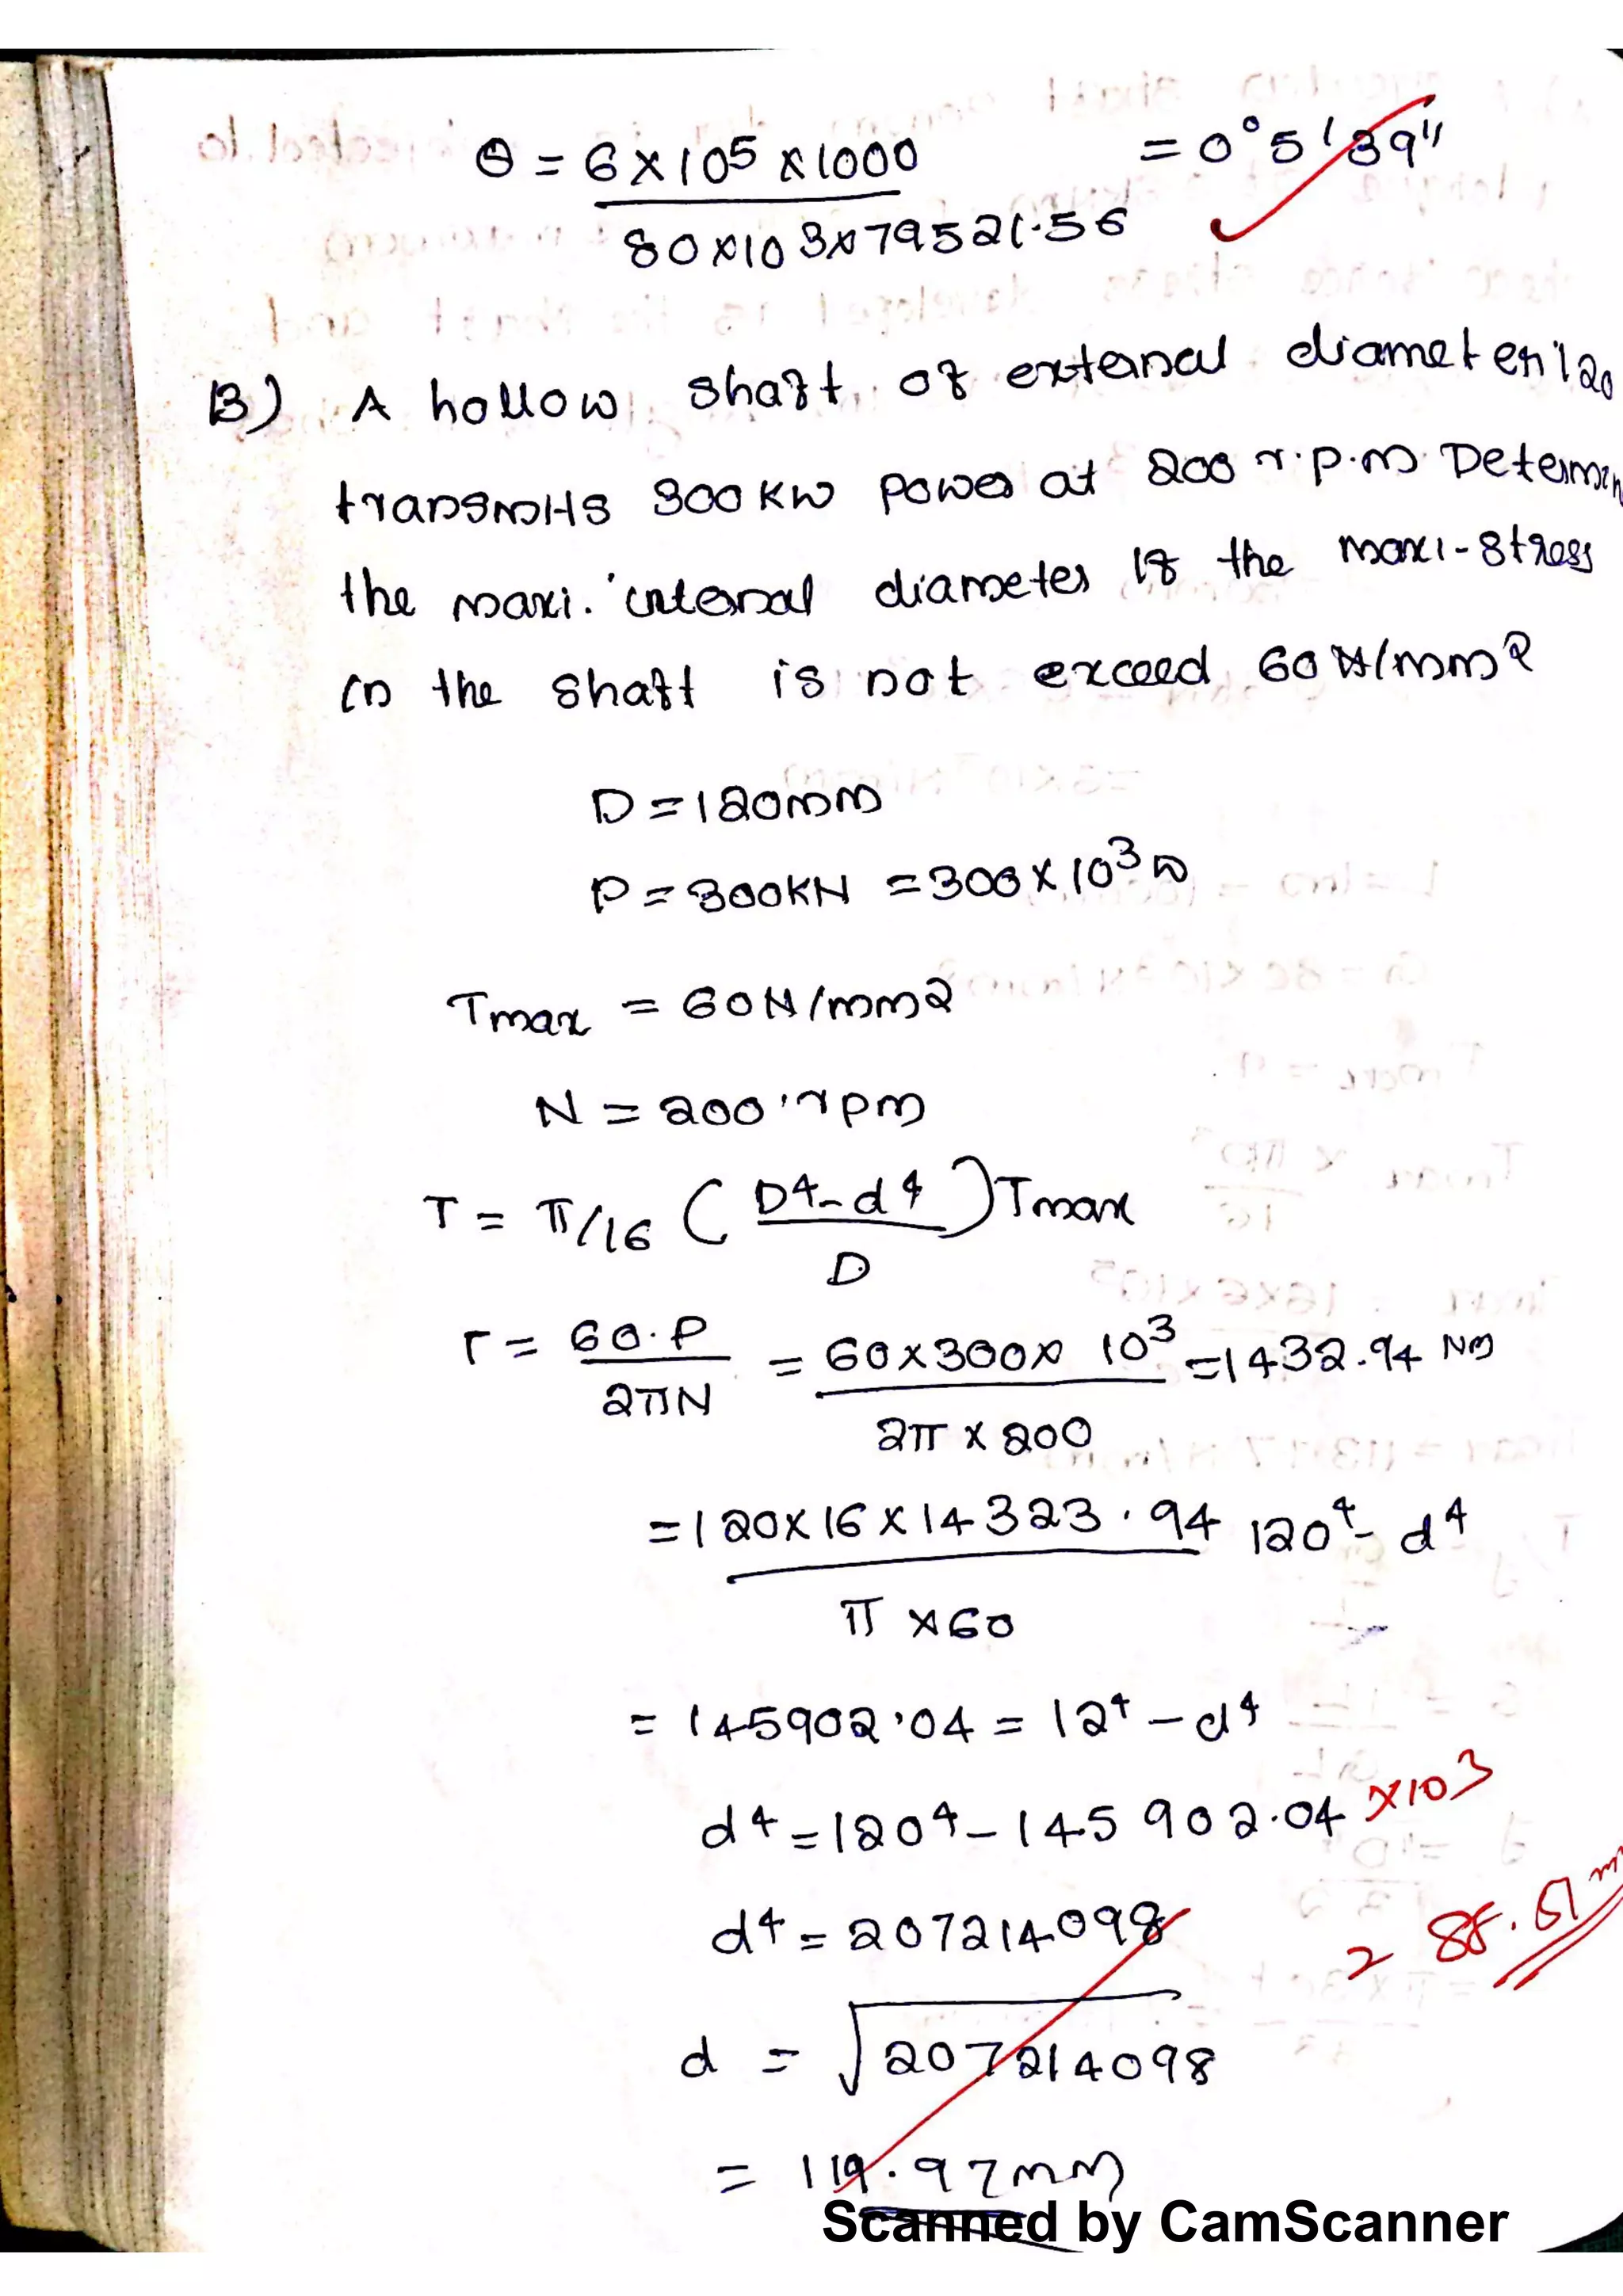 θ = 6×10⁵×1000 / 80×10³×79521.56 = 0°5'39"
B) A hollow shaft of external diameter 120
transmits 300KW power at 200 r.p.m. Determin
the maxi. internal diameter if the maxi-stress
in the shaft is not exceed 60N/mm2
D = 120mm
P = 300KN = 300×10³W
Tmax = 60N/mm2
N = 200 rpm
T = π/16 (D4-d4 / D) Tmax
T = 60.P / 2πN = 60×300× 10³ / 2π × 200 = 1432.94 Nm
= 120×16×14323.94 / π ×60 120⁴- d⁴
= 145902.04 = 12⁴ - d⁴
d⁴ = 120⁴ - 145902.04 ×10³
d⁴ = 207214098
= 88.51 m
d = √207214098
= 119.97mm
Scanned by CamScanner